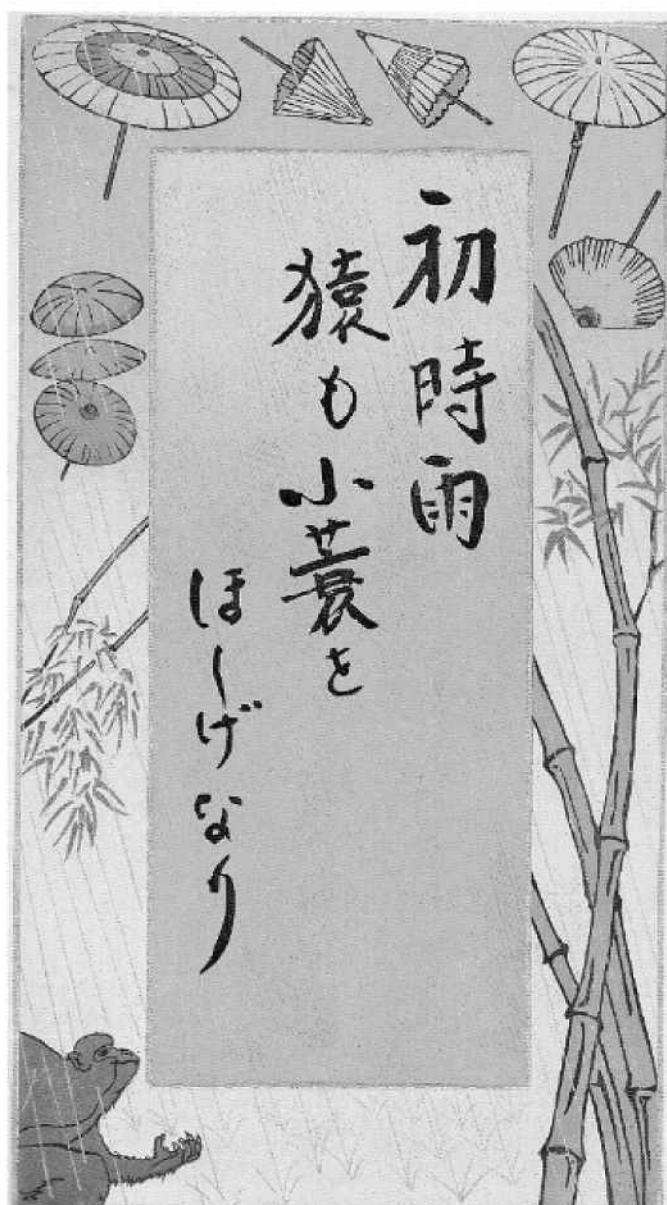 初時雨
猿も小蓑を
ほしげなり